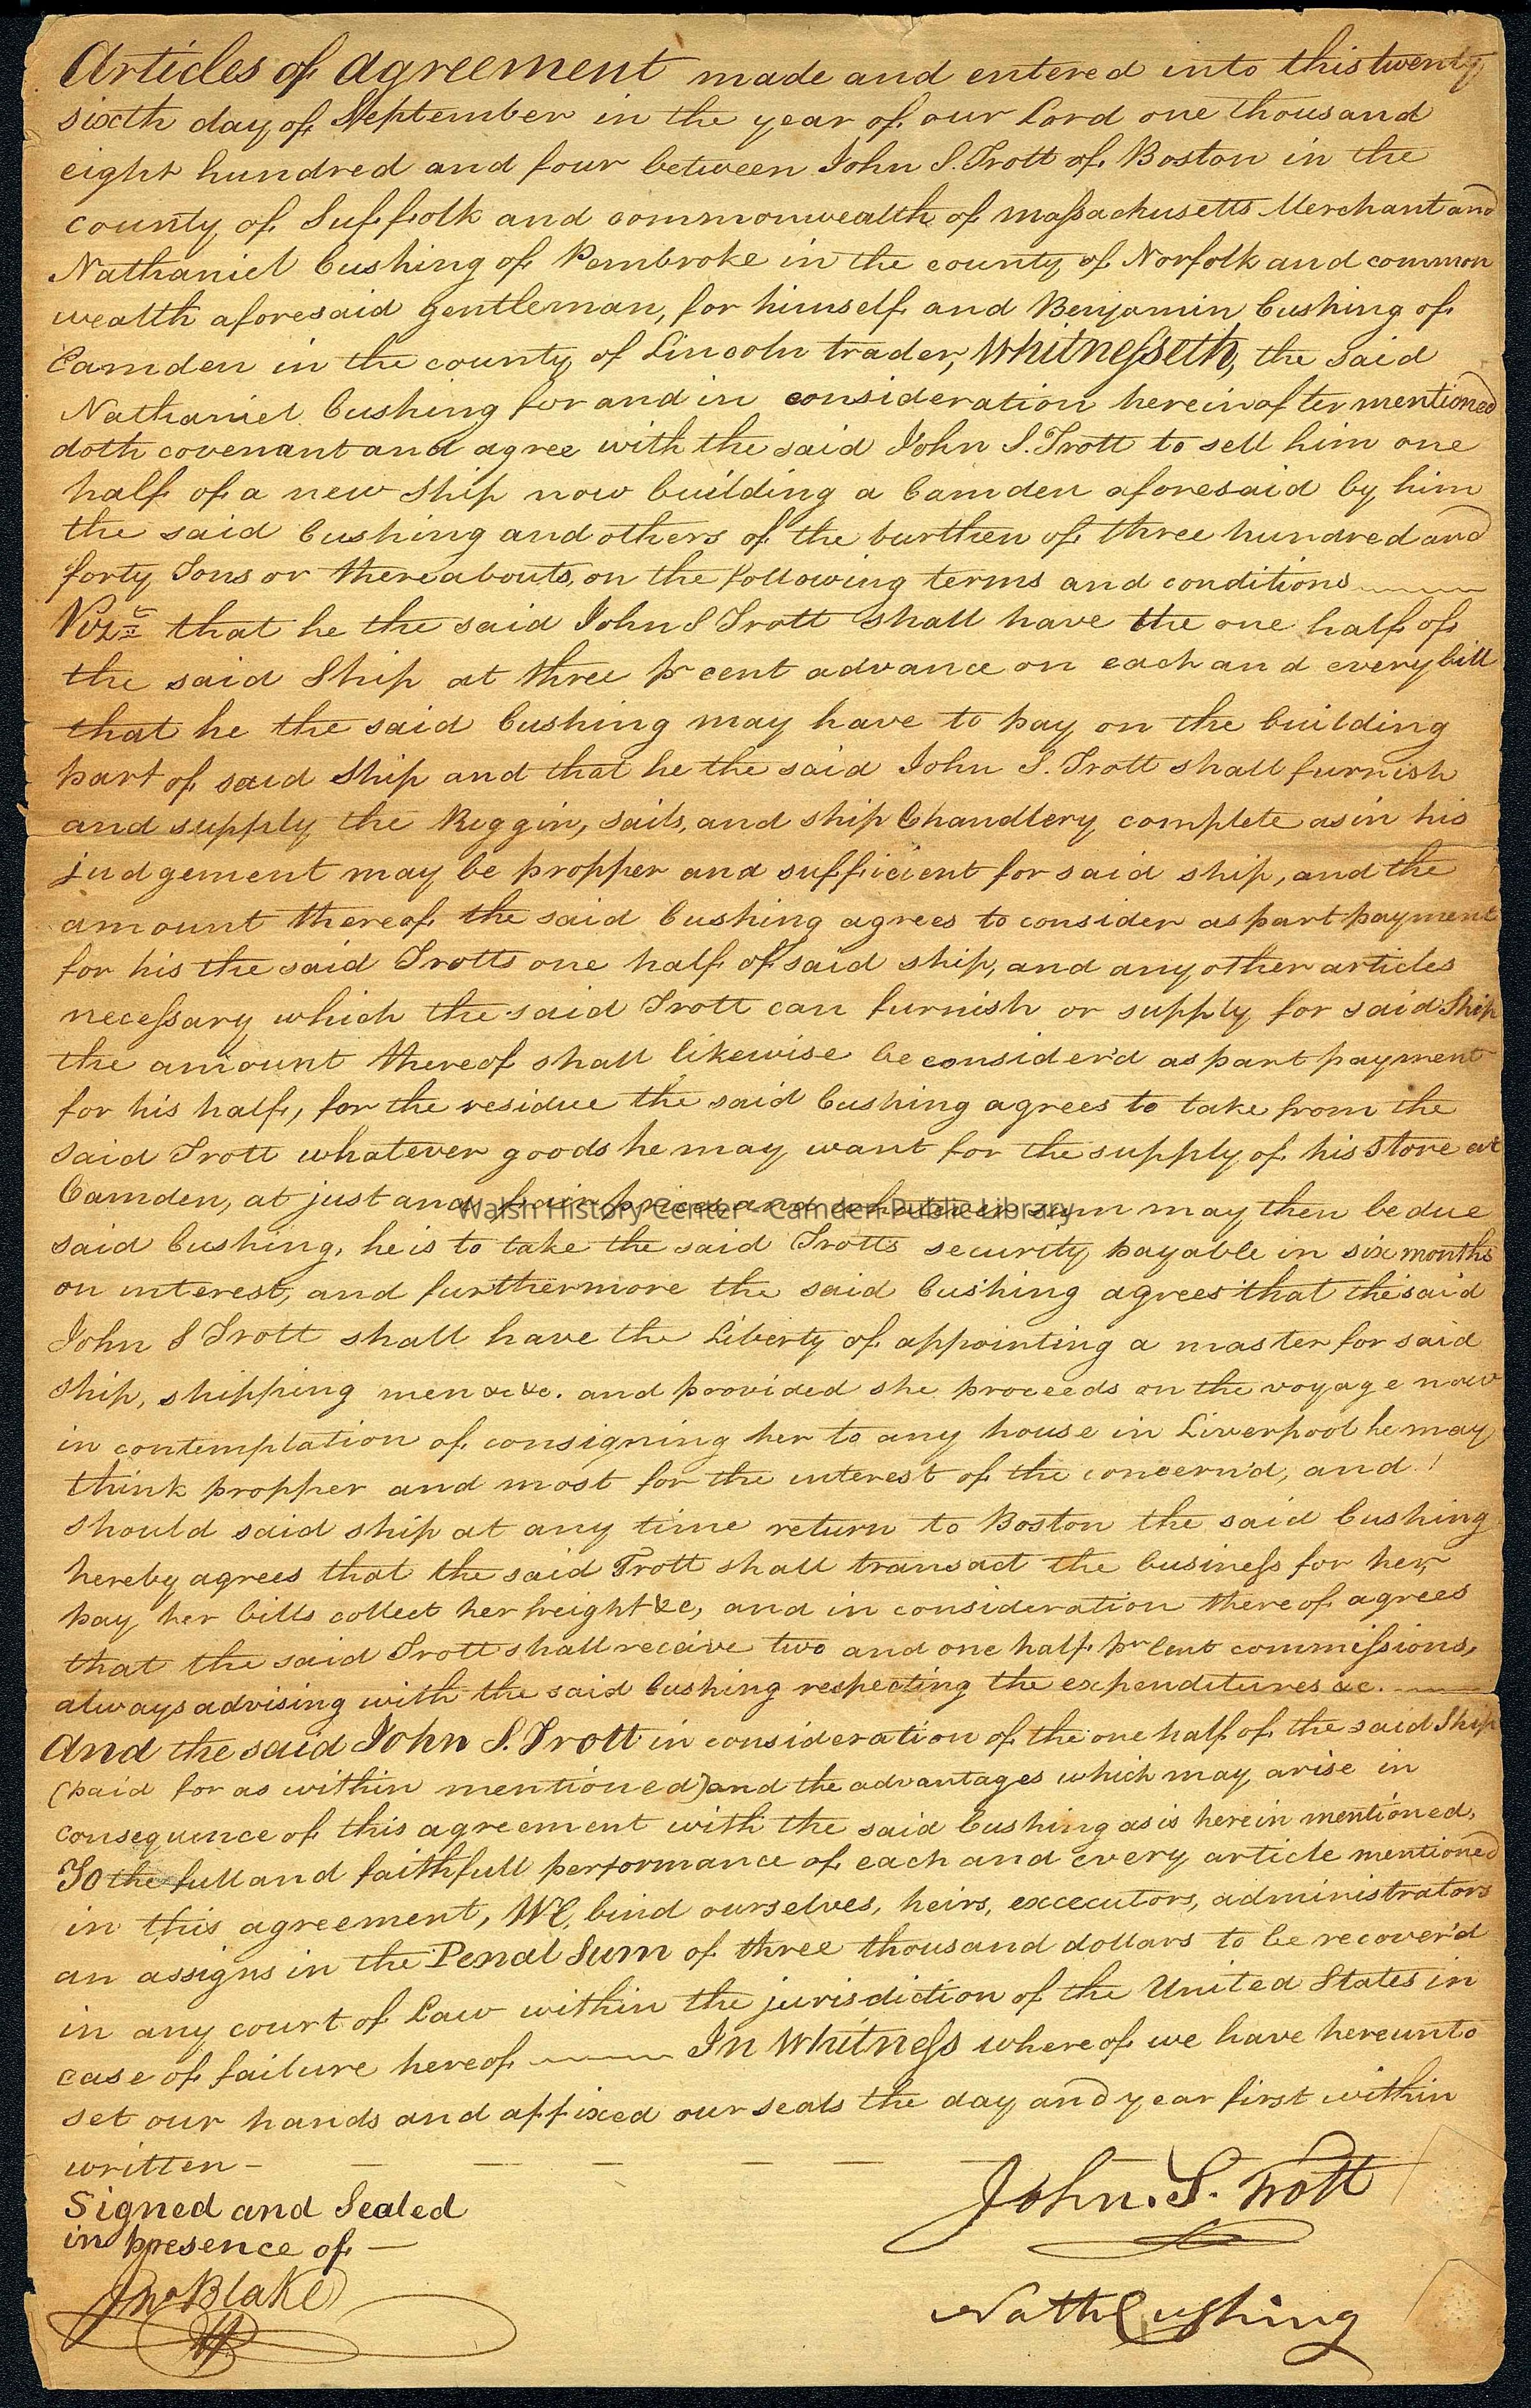 Articles of Agreement made and entered into this twenty
sixth day of September in the year of our Lord one thousand
eight hundred and four between John S. Trott of Boston in the
county of Suffolk and commonwealth of Massachusetts Merchant and
Nathaniel Cushing of Pembroke in the county of Norfolk and common
wealth aforesaid gentleman, for himself and Benjamin Cushing of
Camden in the county of Lincoln trader, Whitnesseth, the said
Nathaniel Cushing for and in consideration herein after mentioned
doth covenant and agree with the said John S. Trott to sell him one
half of a new Ship now building a Camden aforesaid by him
the said Cushing and others of the burthen of three hundred and
forty Tons or thereabouts, on the following terms and conditions
Vizt that he the said John S Trott shall have the one half of
the said Ship at three pr cent advance on each and every bill
that he the said Cushing may have to pay on the building
part of said Ship and that he the said John S. Trott shall furnish
and supply the Riggin, sails, and ship Chandlery complete as in his
judgement may be propper and sufficient for said ship, and the
amount thereof the said Cushing agrees to consider as part payment
for his the said Trotts one half of said ship, and any other articles
necessary which the said Trott can furnish or supply for said Ship
the amount thereof shall likewise be consider'd as part payment
for his half, for the residue the said Cushing agrees to take from the
said Trott whatever goods he may want for the supply of his Store at
Camden, at just and fair prices and whatever sum may then be due
Walsh History Center - Camden Public Library
said Cushing, he is to take the said Trotts security payable in six months
on interest, and furthermore the said Cushing agrees that the said
John S Trott shall have the Liberty of appointing a master for said
ship, shipping men &c &c. and provided she proceeds on the voyage now
in contemplation of consigning her to any house in Liverpool he may
think propper and most for the interest of the concern'd, and
should said ship at any time return to Boston the said Cushing
hereby agrees that the said Trott shall transact the business for her,
pay her bills collect her freight &c, and in consideration thereof agrees
that the said Trott shall receive two and one half pr Cent commissions,
always advising with the said Cushing respecting the expenditures &c.
And the said John S. Trott in consideration of the one half of the said Ship
(paid for as within mentioned) and the advantages which may arise in
consequence of this agreement with the said Cushing as is herein mentioned,
To the full and faithfull performance of each and every article mentioned
in this agreement, We, bind ourselves, heirs, excecutors, administrators
an assigns in the Penal Sum of three thousand dollars to be recover'd
in any court of Law within the jurisdiction of the United States in
case of failure hereof In Whitness whereof we have hereunto
set our hands and affixed our seals the day and year first within
written
Signed and Sealed
in presence of
Jno Blake
John. S. Trott
Nath Cushing